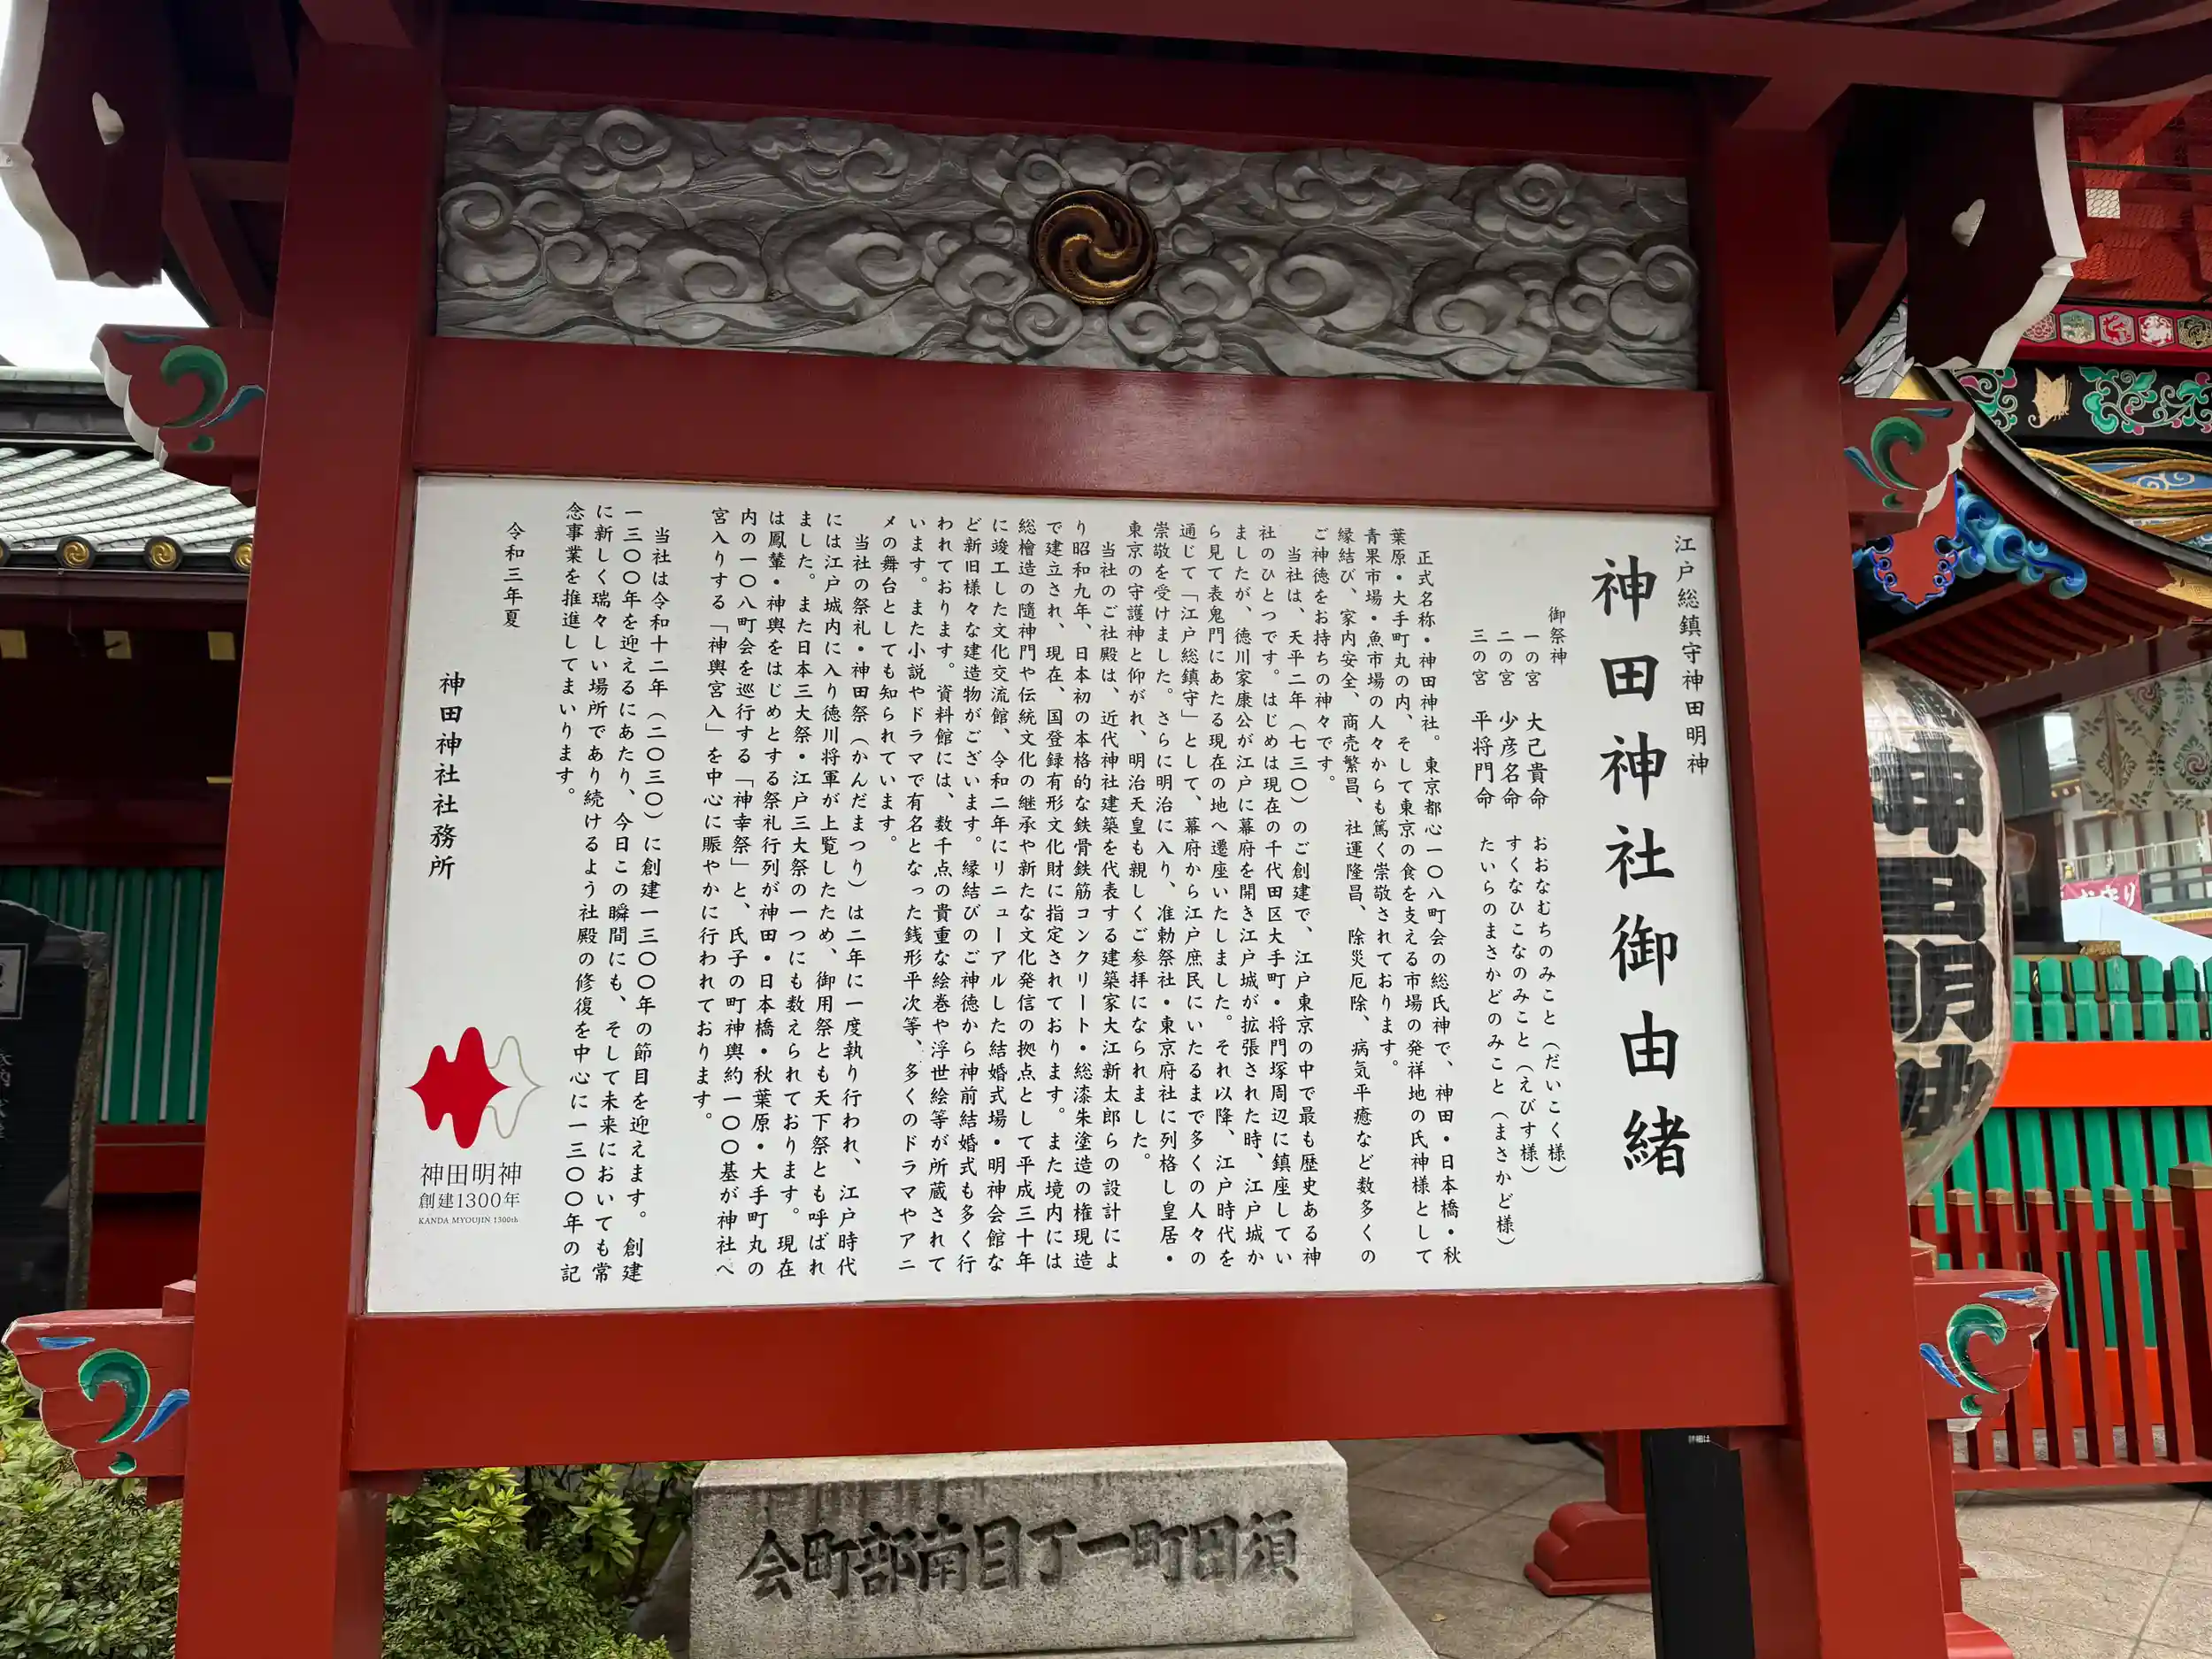 江戸総鎮守神田明神
神田神社御由緒
御祭神
一の宮　大己貴命　おおなむちのみこと（だいこく様）
二の宮　少彦名命　すくなひこなのみこと（えびす様）
三の宮　平将門命　たいらのまさかどのみこと（まさかど様）
正式名称・神田神社。東京都心一〇八町会の総氏神で、神田・日本橋・秋
葉原・大手町丸の内、そして東京の食を支える市場の発祥地の氏神様として
青果市場・魚市場の人々からも篤く崇敬されております。
縁結び、家内安全、商売繁昌、社運隆昌、除災厄除、病気平癒など数多くの
ご神徳をお持ちの神々です。
当社は、天平二年（七三〇）のご創建で、江戸東京の中で最も歴史ある神
社のひとつです。はじめは現在の千代田区大手町・将門塚周辺に鎮座してい
ましたが、徳川家康公が江戸に幕府を開き江戸城が拡張された時、江戸城か
ら見て表鬼門にあたる現在の地へ遷座いたしました。それ以降、江戸時代を
通じて「江戸総鎮守」として、幕府から江戸庶民にいたるまで多くの人々の
崇敬を受けました。さらに明治に入り、准勅祭社・東京府社に列格し皇居・
東京の守護神と仰がれ、明治天皇も親しくご参拝になられました。
当社のご社殿は、近代神社建築を代表する建築家大江新太郎らの設計によ
り昭和九年、日本初の本格的な鉄骨鉄筋コンクリート・総漆朱塗造の権現造
で建立され、現在、国登録有形文化財に指定されております。また境内には
総檜造の隨神門や伝統文化の継承や新たな文化発信の拠点として平成三十年
に竣工した文化交流館、令和二年にリニューアルした結婚式場・明神会館な
ど新旧様々な建造物がございます。縁結びのご神徳から神前結婚式も多く行
われております。資料館には、数千点の貴重な絵巻や浮世絵等が所蔵されて
います。また小説やドラマで有名となった銭形平次等、多くのドラマやアニ
メの舞台としても知られています。
当社の祭礼・神田祭（かんだまつり）は二年に一度執り行われ、江戸時代
には江戸城内に入り徳川将軍が上覧したため、御用祭とも天下祭とも呼ばれ
ました。また日本三大祭・江戸三大祭の一つにも数えられております。現在
は鳳輦・神輿をはじめとする祭礼行列が神田・日本橋・秋葉原・大手町丸の
内の一〇八町会を巡行する「神幸祭」と、氏子の町神輿約一〇〇基が神社へ
宮入りする「神輿宮入」を中心に賑やかに行われております。
当社は令和十二年（二〇三〇）に創建一三〇〇年の節目を迎えます。創建
一三〇〇年を迎えるにあたり、今日この瞬間にも、そして未来においても常
に新しく瑞々しい場所であり続けるよう社殿の修復を中心に一三〇〇年の記
念事業を推進してまいります。
令和三年夏
神田神社社務所
神田明神
創建1300年
KANDA MYOUJIN 1300th
神田明神
会町部南目丁一町田須